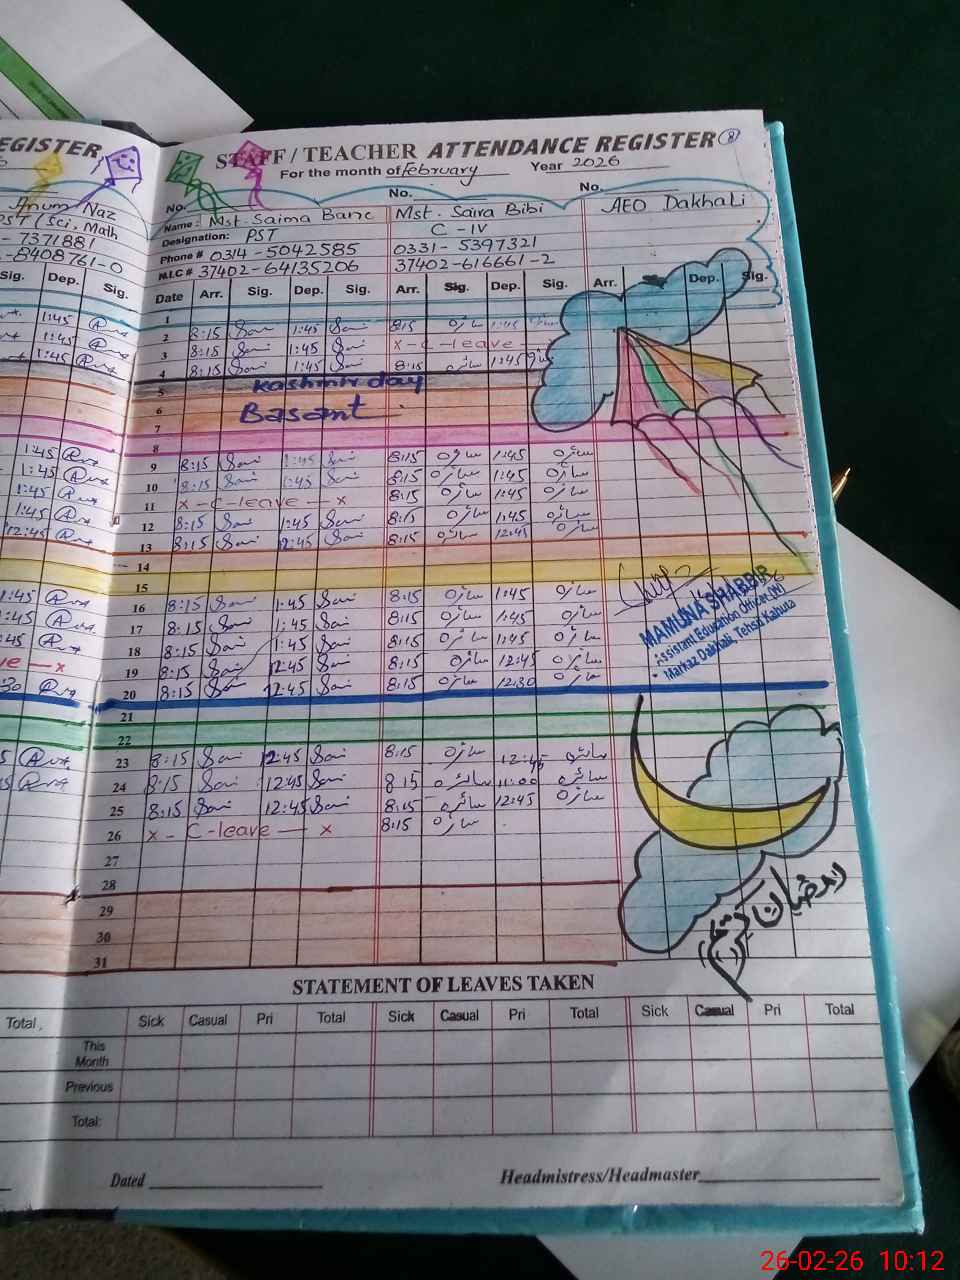 EGISTER
STAFF / TEACHER ATTENDANCE REGISTER 8
For the month of February Year 2026
No. No. No.
Anum Naz
PST (Sci, Math
- 7371881
-8408761-0
Name: Mst. Saima Bano Mst. Saira Bibi AEO Dakhali
Designation: PST C - IV
Phone # 0314-5042585 0331-5397321
N.I.C # 37402-64135206 37402-616661-2
Sig. Dep. Sig.
Date Arr. Sig. Dep. Sig. Arr. Sig. Dep. Sig. Arr. Dep. Sig.
1
1:45 2 8:15 Sai 1:45 Sai 8:15 سائرہ 1:45
1:45 3 8:15 Sai 1:45 Sai x - C - leave -
1:45 4 8:15 Sai 1:45 Sai 8:15 سائرہ 1:45
5 Kashmir day
6 Basant
7
8
1:45 9 8:15 Sai 1:45 Sai 8:15 سائرہ 1:45 سائرہ
1:45 10 8:15 Sai 1:45 Sai 8:15 سائرہ 1:45 سائرہ
1:45 11 x - C - leave - x 8:15 سائرہ 1:45 سائرہ
1:45 12 8:15 Sai 1:45 Sai 8:15 سائرہ 1:45 سائرہ
12:45 13 8:15 Sai 12:45 Sai 8:15 سائرہ 12:45 سائرہ
14
15
1:45 16 8:15 Sai 1:45 Sai 8:15 سائرہ 1:45 سائرہ
1:45 17 8:15 Sai 1:45 Sai 8:15 سائرہ 1:45 سائرہ
:45 18 8:15 Sai 1:45 Sai 8:15 سائرہ 1:45 سائرہ
ve - x 19 8:15 Sai 12:45 Sai 8:15 سائرہ 12:45 سائرہ
:30 20 8:15 Sai 12:45 Sai 8:15 سائرہ 12:30 سائرہ
MAMUNA SHABBIR
Assistant Education Officer (W)
Markaz Dakhali, Tehsil Kahuta
21
22
23 8:15 Sai 12:45 Sai 8:15 سائرہ 12:45 سائرہ
24 8:15 Sai 12:45 Sai 8 15 سائرہ 11:00 سائرہ
25 8:15 Sai 12:45 Sai 8:15 سائرہ 12:45 سائرہ
26 x - C - leave - x 8:15 سائرہ
27
28
29
30
31
رمضان کریم
STATEMENT OF LEAVES TAKEN
Total, Sick Casual Pri Total Sick Casual Pri Total Sick Casual Pri Total
This Month
Previous
Total:
Dated Headmistress/Headmaster
26-02-26 10:12